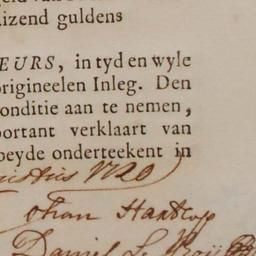 uizend guldens
EURS, in tyd en wyle
origineelen Inleg. Den
onditie aan te nemen,
portant verklaart van
beyde onderteekent in
ustus 1720
Johan Hartlop
Daniel Le Roij